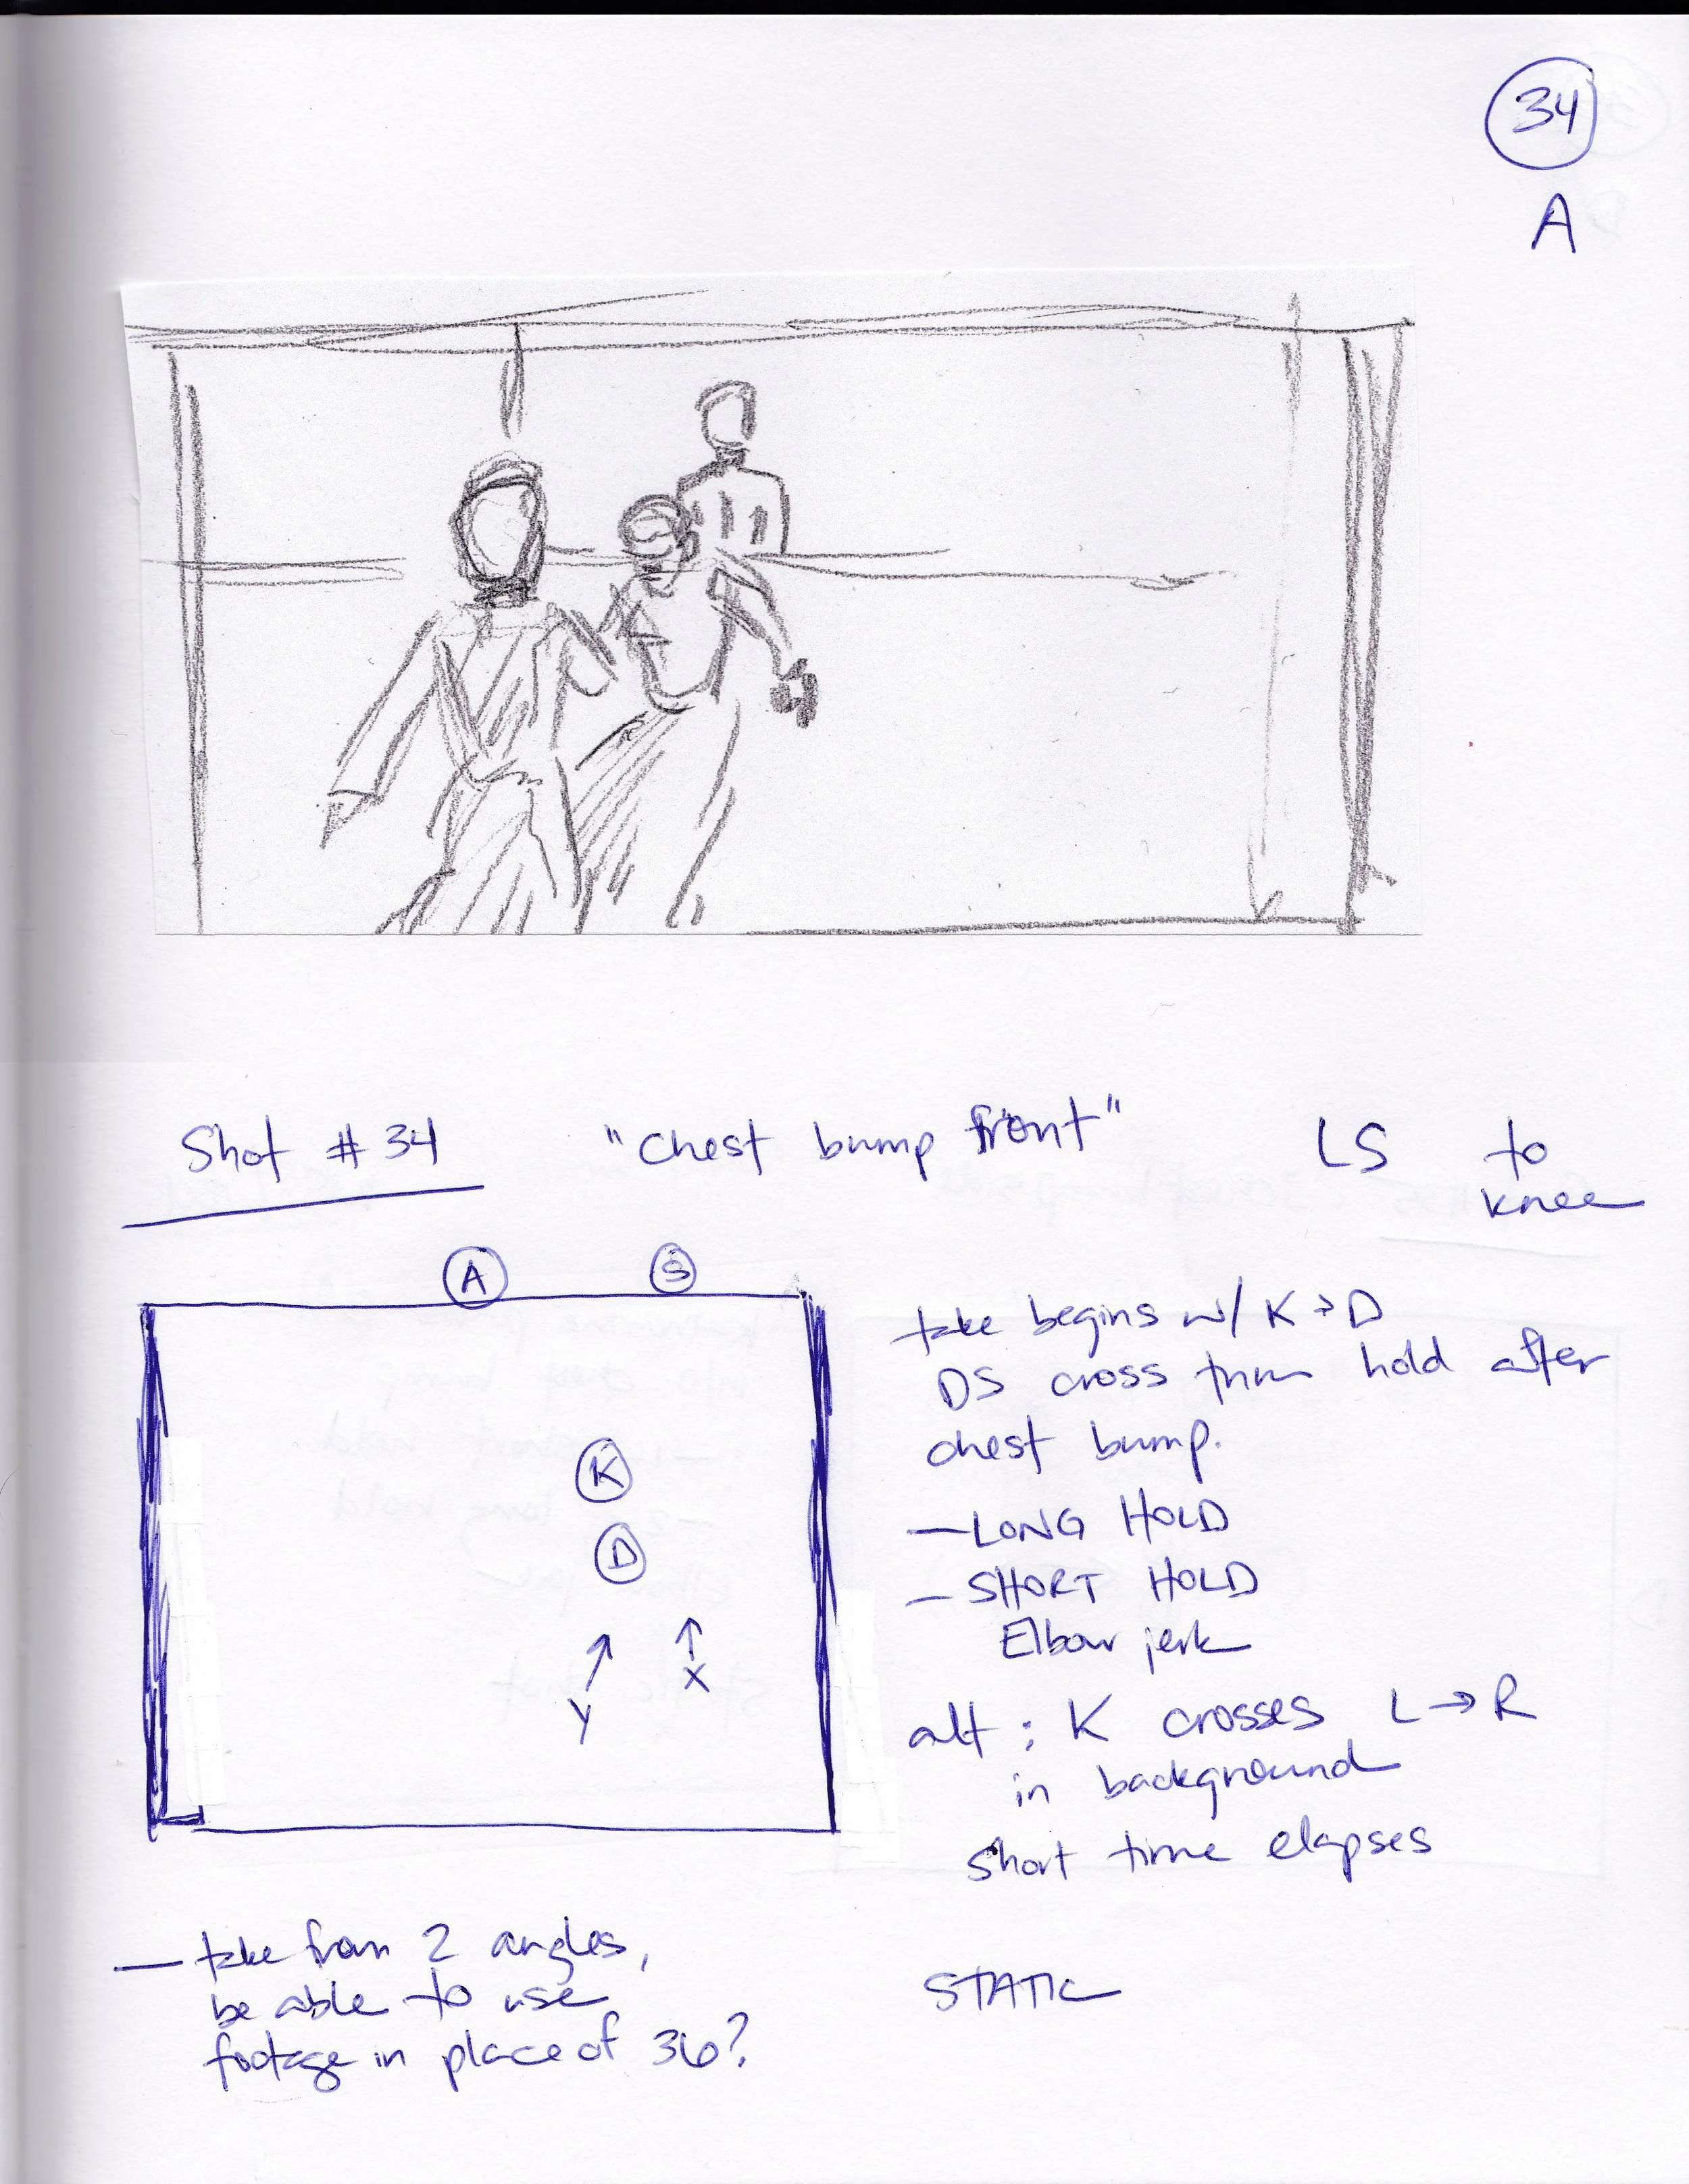 34
A
Shot # 34 "Chest bump front" LS to
knee
A S
take begins w/ K → D
DS cross thru hold after
chest bump.
K
— LONG HOLD
D
— SHORT HOLD
Elbow jerk
X
Y
alt : K crosses L → R
in background
short time elapses
— take from 2 angles,
be able to use
footage in place of 36?
STATIC